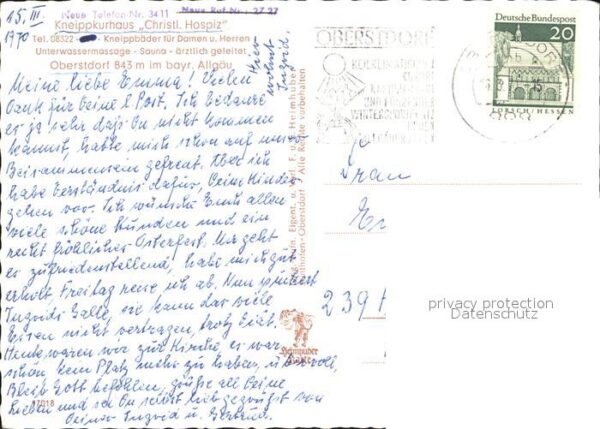 15. III. 1970
Neue Telefon-Nr. 3411
Neue Ruf-Nr.: 27 27
Kneippkurhaus „Christl. Hospiz"
Tel. 08322 - Kneippbäder für Damen u. Herren
Unterwassermassage - Sauna - ärztlich geleitet
Oberstdorf 843 m im bayr. Allgäu
Hier wohnt Ingrid.
Meine liebe Emma! Vielen
Dank für Deine l. Post. Ich bedaure
es ja sehr daß Du nicht kommen
kannst, hatte mich schon auf unser
Beisammensein gefreut. Aber ich
habe Verständnis dafür, Deine Kinder
gehen vor. Ich wünsche Euch allen
viele schöne Stunden und ein
recht fröhliches Osterfest. Mir geht
es zufriedenstellend, habe mich gut
erholt, Freitag reise ich ab. Nun
Ingrids Galle, sie kann das viele
Essen nicht vertragen, trotz Diät.
Heute waren wir zur Kirche, es war
schon kein Platz mehr zu haben,
Bleib Gott befohlen, grüße all Deine
Lieben und sei Du selbst lieb gegrüßt von
Deiner Ingrid u. Gertrud.
17018
Eigent. u. Verl. F. u. E. Heimhuber
Sonthofen-Oberstdorf · Alle Rechte vorbehalten
Heimhuber
OBERSTDORF
Deutsche Bundespost
20
LORSCH/HESSEN
Frau
239
privacy protection
Datenschutz